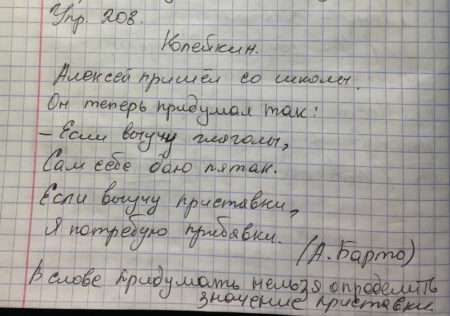 Упр. 208.
Копейкин.
Алексей пришёл со школы.
Он теперь придумал так:
- Если выучу глаголы,
Сам себе даю пятак.
Если выучу приставки,
Я потребую прибявки.
(А. Барто)
В слове придумать нельзя определить
значение приставки.